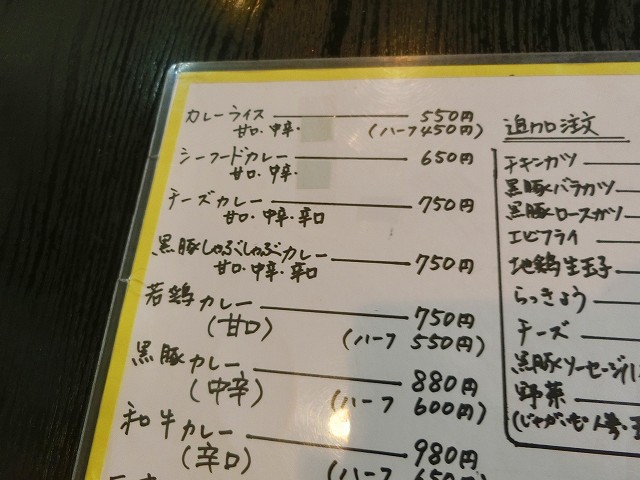 カレーライス 550円
甘口・中辛・ (ハーフ450円)
シーフードカレー 650円
甘口・中辛・
チーズカレー 750円
甘口・中辛・辛口
黒豚しゃぶしゃぶカレー 750円
甘口・中辛・辛口
若鶏カレー 750円
(甘口) (ハーフ 550円)
黒豚カレー 880円
(中辛) (ハーフ 600円)
和牛カレー 980円
(辛口) (ハーフ 650円)
追加注文
チキンカツ
黒豚バラカツ
黒豚ロースカツ
エビフライ
地鶏生玉子
らっきょう
チーズ
黒豚ソーセージ
野菜
(じゃがいも・人参・